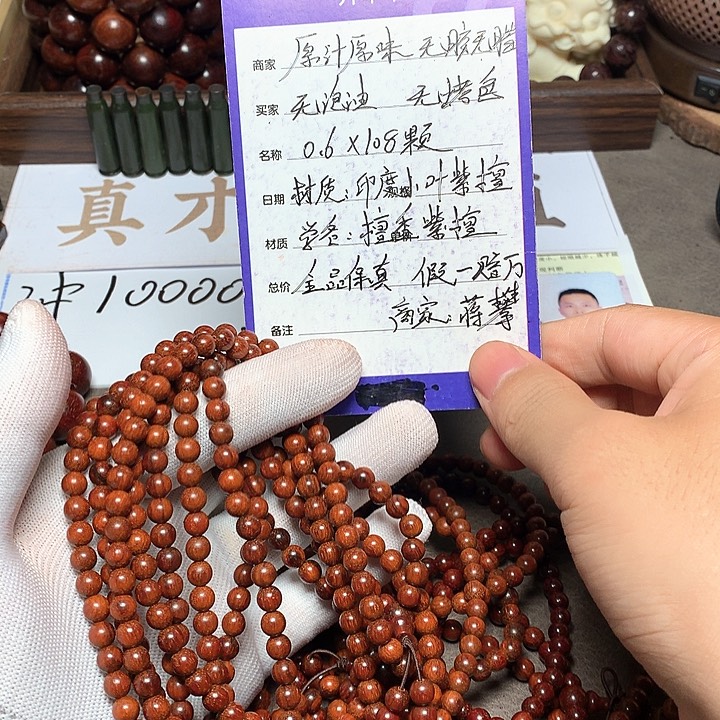 商家 原汁原味 无胶无腊
买家 无泡油 无烤色
名称 0.6×108颗
日期 材质:印度小叶紫檀
材质 学名:檀香紫檀
总价 全品保真 假一赔万
备注 商家:蒋攀
真才
冲10000